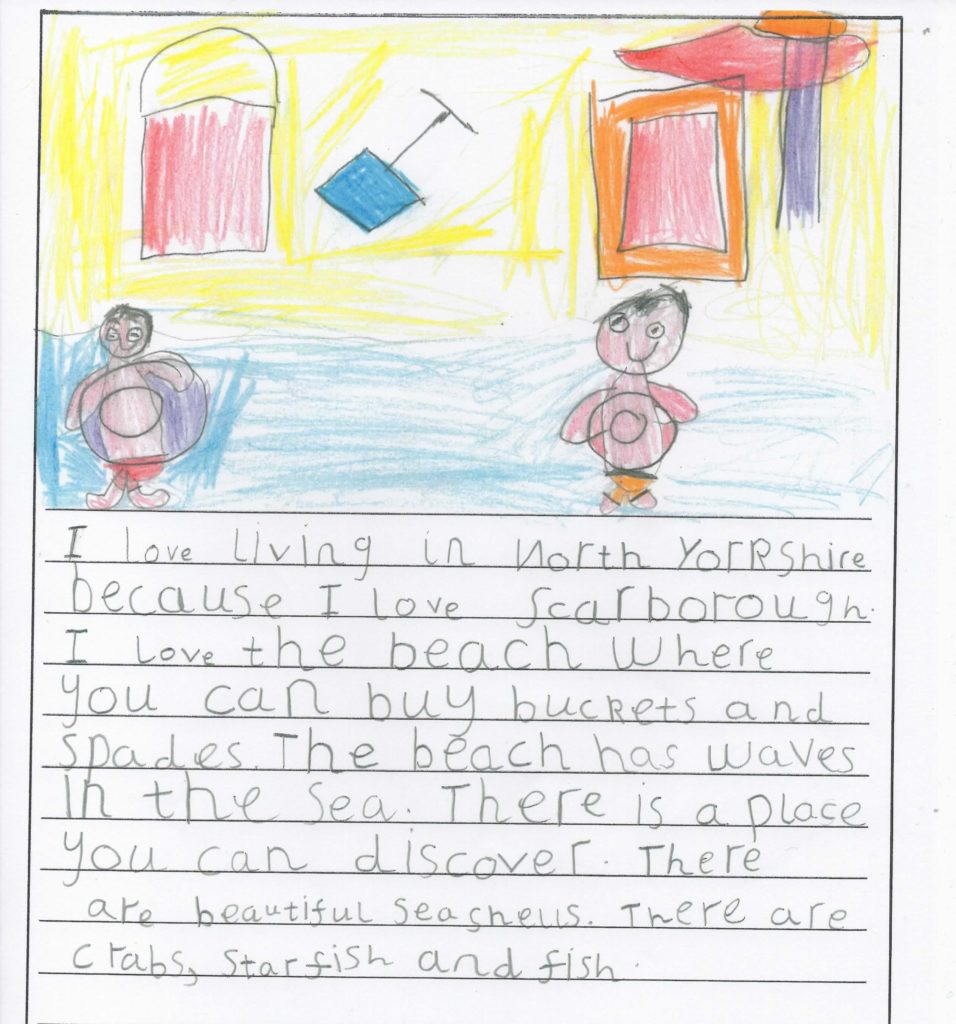 I love living in North Yorkshire
because I love Scarborough.
I love the beach where
you can buy buckets and
spades. The beach has waves
in the sea. There is a place
you can discover. There
are beautiful seashells. There are
crabs, starfish and fish.